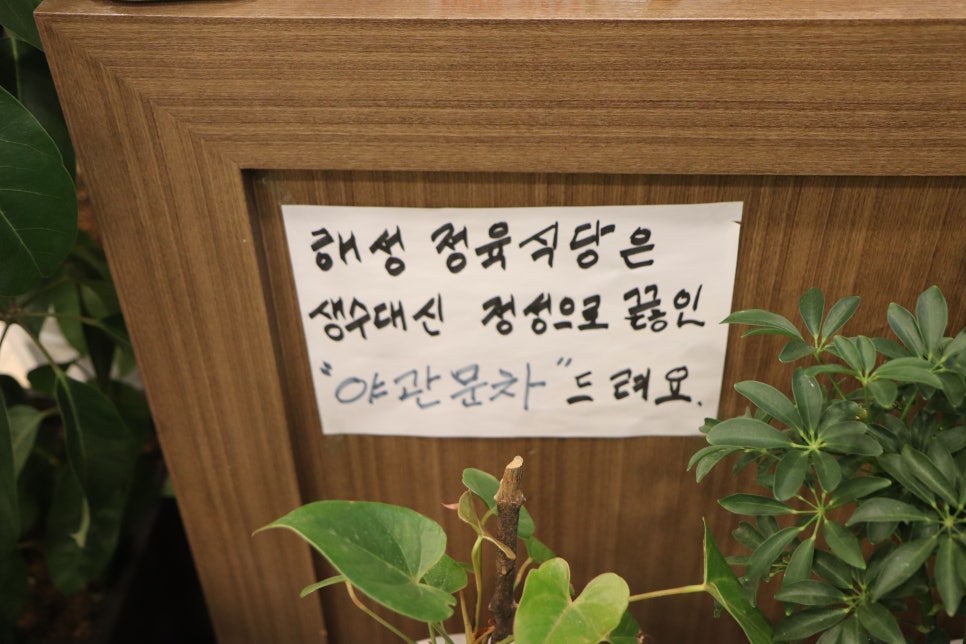 해성 정육식당은
생수대신 정성으로 끓인
"야관문차" 드려요.